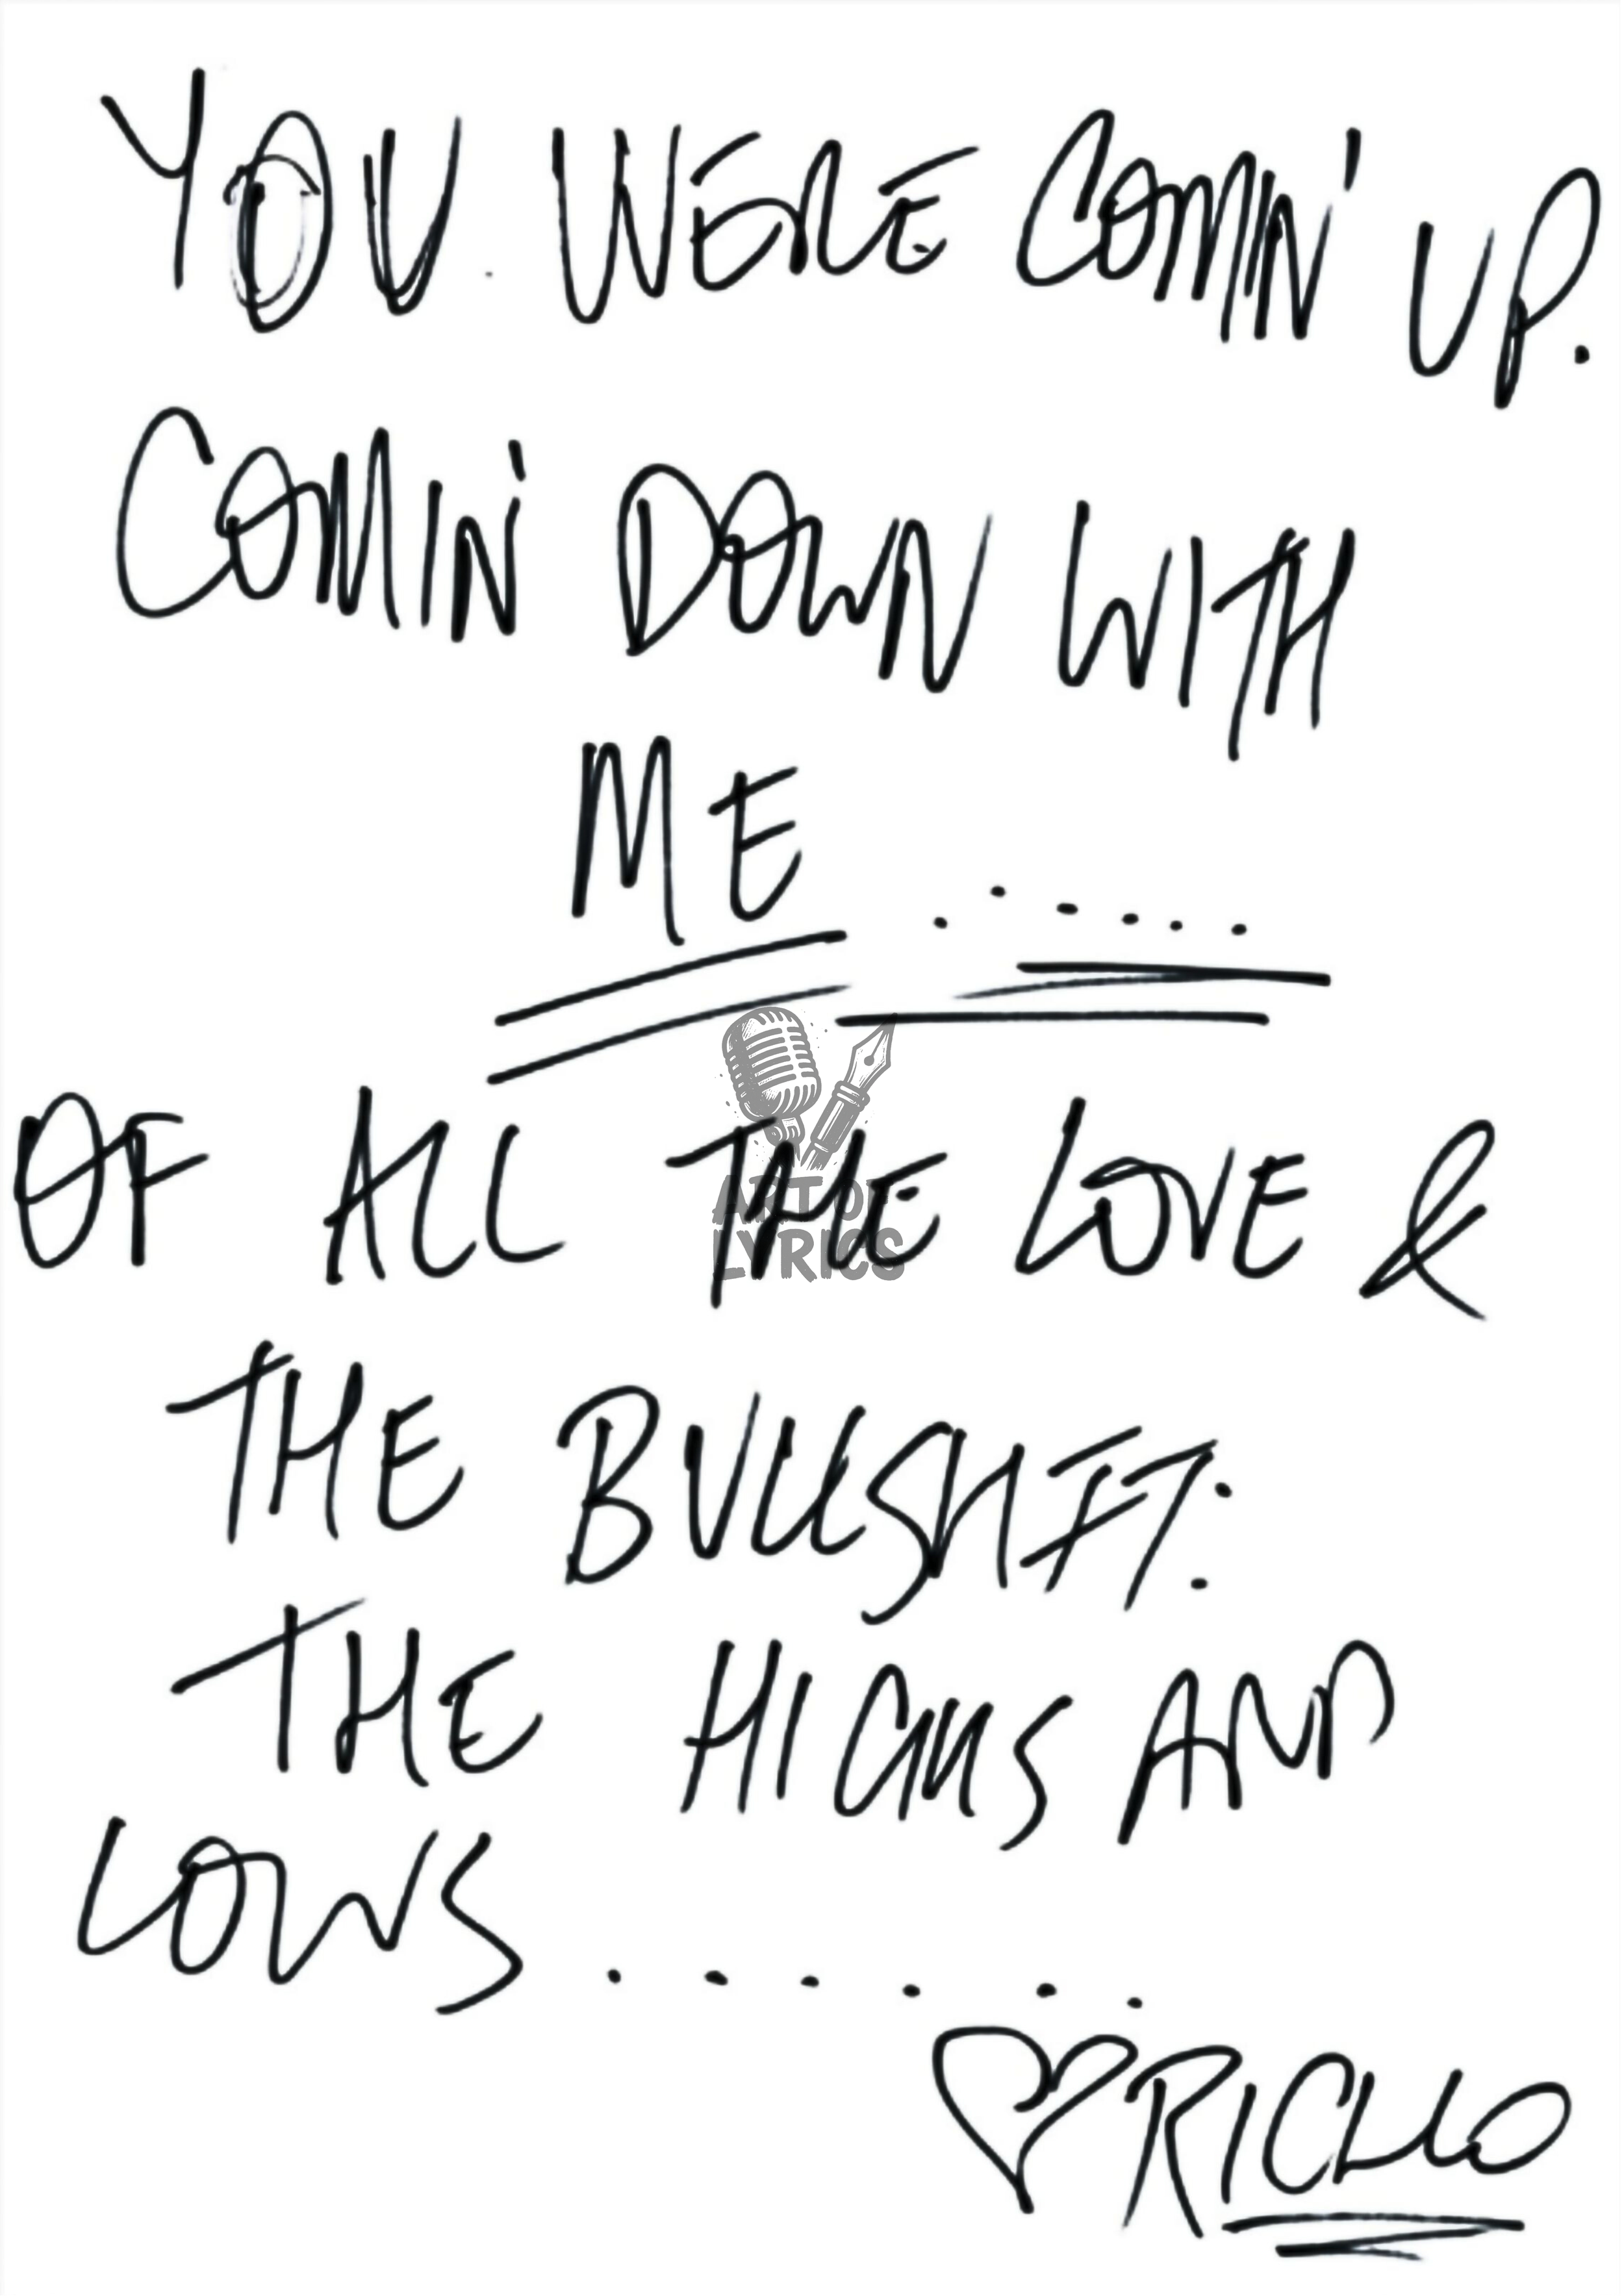 YOU WERE COMIN' UP.
COMIN' DOWN WITH
ME ......
OF ALL THE LOVE &
THE BULLSHIT:
THE HIGHS AND
LOWS ......
♡ RICHO
ART OF
LYRICS